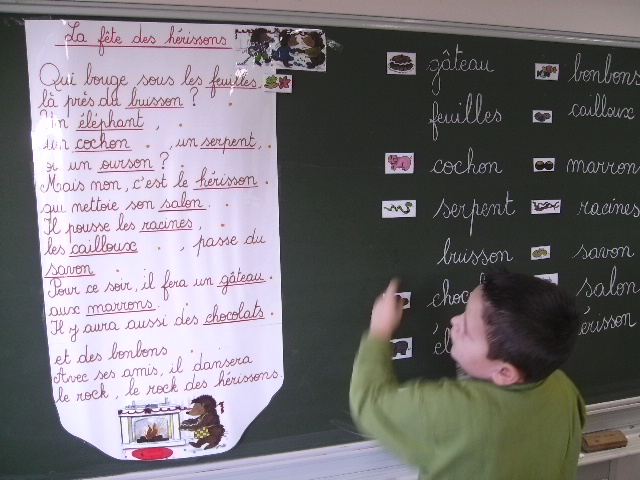 La fête des hérissons
Qui bouge sous les feuilles,
là près du buisson ?
Un éléphant,
un cochon, un serpent,
ou un ourson ?
Mais non, c'est le hérisson
qui nettoie son salon.
Il pousse les racines,
les cailloux, passe du
savon
Pour ce soir, il fera un gâteau
aux marrons.
Il y aura aussi des chocolats
et des bonbons
Avec ses amis, il dansera
le rock, le rock des hérissons.
gâteau
feuilles
cochon
serpent
buisson
bonbons
cailloux
marron
racines
savon
salon
hérisson